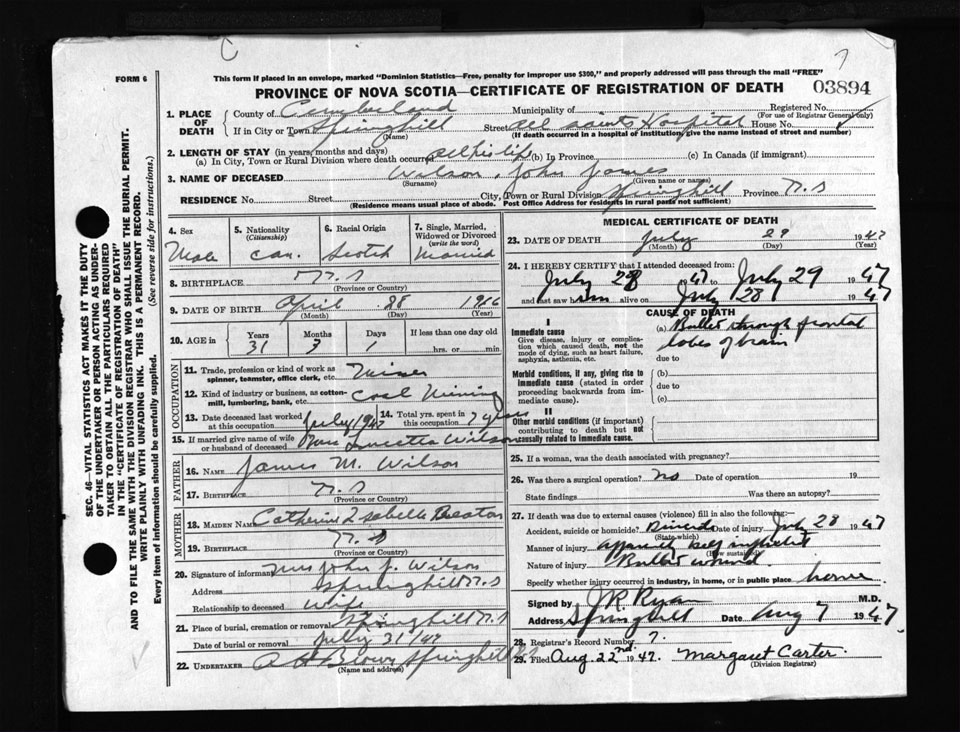 FORM 6
This form if placed in an envelope, marked "Dominion Statistics—Free, penalty for improper use $300," and properly addressed will pass through the mail "FREE"
PROVINCE OF NOVA SCOTIA—CERTIFICATE OF REGISTRATION OF DEATH 03894
1. PLACE OF DEATH County of Cumberland Municipality of Registered No. (For use of Registrar General only)
If in City or Town Springhill (Name) Street All Saints Hospital House No.
(If death occurred in a hospital of institution, give the name instead of street and number)
2. LENGTH OF STAY (in years, months and days)
(a) In City, Town or Rural Division where death occurred All his life (b) In Province (c) In Canada (if immigrant)
3. NAME OF DECEASED Wilson, John James
(Surname) (Given name or names)
RESIDENCE No. Street City, Town or Rural Division Springhill Province N.S
(Residence means usual place of abode. Post Office Address for residents in rural parts not sufficient)
4. Sex Male
5. Nationality (Citizenship) Can.
6. Racial Origin Scotch
7. Single, Married, Widowed or Divorced (write the word) Married
8. BIRTHPLACE N.S
(Province or Country)
9. DATE OF BIRTH April 28 1916
(Month) (Day) (Year)
10. AGE in Years 31 Months 3 Days 1 If less than one day old hrs. or min.
OCCUPATION
11. Trade, profession or kind of work as spinner, teamster, office clerk, etc. Miner
12. Kind of industry or business, as cotton-mill, lumbering, bank, etc. Coal Mining
13. Date deceased last worked at this occupation July 1947
14. Total yrs. spent in this occupation 7 years
15. If married give name of wife or husband of deceased Wilson
FATHER
16. NAME James M. Wilson
17. BIRTHPLACE N.S
(Province or Country)
MOTHER
18. MAIDEN NAME Catherine Isabelle
19. BIRTHPLACE N.S
(Province or Country)
20. Signature of informant Mrs John J. Wilson
Address Springhill N.S
Relationship to deceased Wife
21. Place of burial, cremation or removal Springhill N.S
Date of burial or removal July 31/47
22. UNDERTAKER A Brown Springhill N.S
(Name and address)
MEDICAL CERTIFICATE OF DEATH
23. DATE OF DEATH July 29 1947
(Month) (Day) (Year)
24. I HEREBY CERTIFY that I attended deceased from:
July 28 1947 to July 29 1947
and last saw him alive on July 28 1947
CAUSE OF DEATH
I
Immediate cause
Give disease, injury or complication which caused death, not the mode of dying, such as heart failure, asphyxia, asthenia, etc.
(a) Bullet through frontal
lobes of brain
due to
Morbid conditions, if any, giving rise to immediate cause (stated in order proceeding backwards from immediate cause).
(b)
due to
(c)
II
Other morbid conditions (if important) contributing to death but not causally related to immediate cause.
25. If a woman, was the death associated with pregnancy?
26. Was there a surgical operation? No Date of operation 19
State findings Was there an autopsy?
27. If death was due to external causes (violence) fill in also the following:—
Accident, suicide or homicide? Date of injury July 28 1947
(State which)
Manner of injury apparently self inflicted
(How sustained)
Nature of injury Bullet wound
Specify whether injury occurred in industry, in home, or in public place home
Signed by J R Ryan M.D.
Address Springhill Date Aug 7 1947
28. Registrar's Record Number 7.
29. Filed Aug. 22nd 1947. Margaret Carter.
(Division Registrar)
SEC. 46—VITAL STATISTICS ACT MAKES IT THE DUTY
OF THE UNDERTAKER OR PERSON ACTING AS UNDER-
TAKER TO OBTAIN ALL THE PARTICULARS REQUIRED
IN THE "CERTIFICATE OF REGISTRATION OF DEATH"
AND TO FILE THE SAME WITH THE DIVISION REGISTRAR WHO SHALL ISSUE THE BURIAL PERMIT.
WRITE PLAINLY WITH UNFADING INK. THIS IS A PERMANENT RECORD.
Every item of information should be carefully supplied. (See reverse side for instructions.)